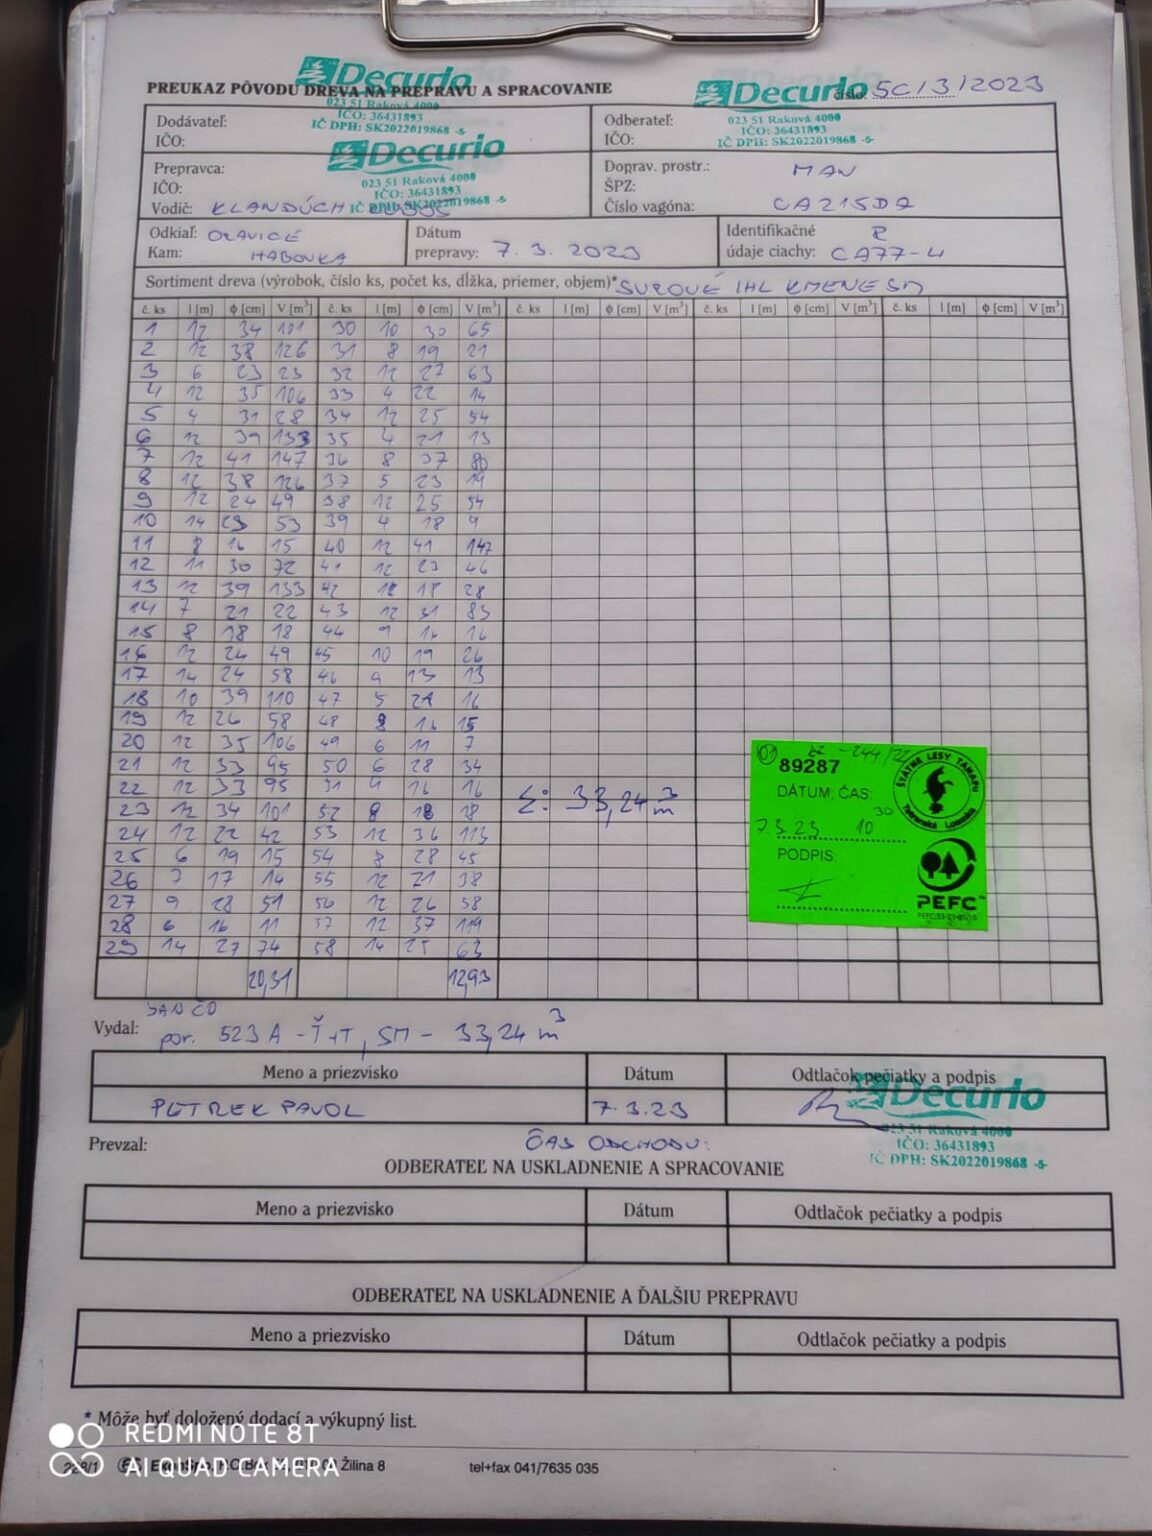 Decurio
PREUKAZ PÔVODU DREVA NA PREPRAVU A SPRACOVANIE
Decurio číslo: 5C/3/2023
023 51 Raková 4000
IČO: 36431893
IČ DPH: SK2022019868 -5-
Dodávateľ:
IČO:
Odberateľ:
IČO:
023 51 Raková 4000
IČO: 36431893
IČ DPH: SK2022019868 -5-
Decurio
023 51 Raková 4000
IČO: 36431893
IČ DPH: SK2022019868 -5-
Prepravca:
IČO:
Vodič: KLANDÚCH
Doprav. prostr.: MAN
ŠPZ:
Číslo vagóna: CA215DA
Odkiaľ: ORAVICE
Kam: HABOVKA
Dátum
prepravy: 7. 3. 2023
Identifikačné R
údaje ciachy: CA77-4
Sortiment dreva (výrobok, číslo ks, počet ks, dĺžka, priemer, objem)* SUROVÉ IHL KMENE SM
č. ks l [m] ϕ [cm] V [m³] č. ks l [m] ϕ [cm] V [m³] č. ks l [m] ϕ [cm] V [m³] č. ks l [m] ϕ [cm] V [m³] č. ks l [m] ϕ [cm] V [m³]
1 12 34 101 30 10 30 65
2 12 38 126 31 8 19 21
3 6 23 23 32 12 27 63
4 12 35 106 33 4 22 14
5 4 31 28 34 12 25 54
6 12 39 133 35 4 21 13
7 12 41 147 36 8 37 80
8 12 38 126 37 5 23 19
9 12 24 49 38 12 25 54
10 14 23 53 39 4 18 9
11 8 16 15 40 12 41 147
12 11 30 72 41 12 23 46
13 12 39 133 42 12 18 28
14 7 21 22 43 12 31 83
15 8 18 18 44 9 16 16
16 12 24 49 45 10 19 26
17 14 24 58 46 9 13 13
18 10 39 110 47 5 21 16
19 12 26 58 48 8 16 15
20 12 35 106 49 6 11 7
21 12 33 95 50 6 28 34
22 12 33 95 51 9 16 16
23 12 34 101 52 8 18 18
24 12 22 42 53 12 36 113
25 6 19 15 54 8 28 45
26 7 17 14 55 12 21 38
27 9 28 51 56 12 26 58
28 6 16 11 57 12 37 119
29 14 27 74 58 14 25 63
20,31 12,93
Σ: 33,24 m³
01 -244/22
89287
ŠTÁTNE LESY TANAPU
Tatranská Lomnica
DÁTUM, ČAS:
7.3.23 10 30
PODPIS:
PEFC™
Vydal: JAN ČO
por. 523 A - Ť+T, SM - 33,24 m³
Meno a priezvisko Dátum Odtlačok pečiatky a podpis
PETREK PAVOL 7.3.23
Decurio
023 51 Raková 4000
IČO: 36431893
IČ DPH: SK2022019868 -5-
Prevzal: ČAS ODCHODU:
ODBERATEĽ NA USKLADNENIE A SPRACOVANIE
Meno a priezvisko Dátum Odtlačok pečiatky a podpis
ODBERATEĽ NA USKLADNENIE A ĎALŠIU PREPRAVU
Meno a priezvisko Dátum Odtlačok pečiatky a podpis
* Môže byť doložený dodací a výkupný list.
REDMI NOTE 8T
AI QUAD CAMERA
Žilina 8 tel+fax 041/7635 035